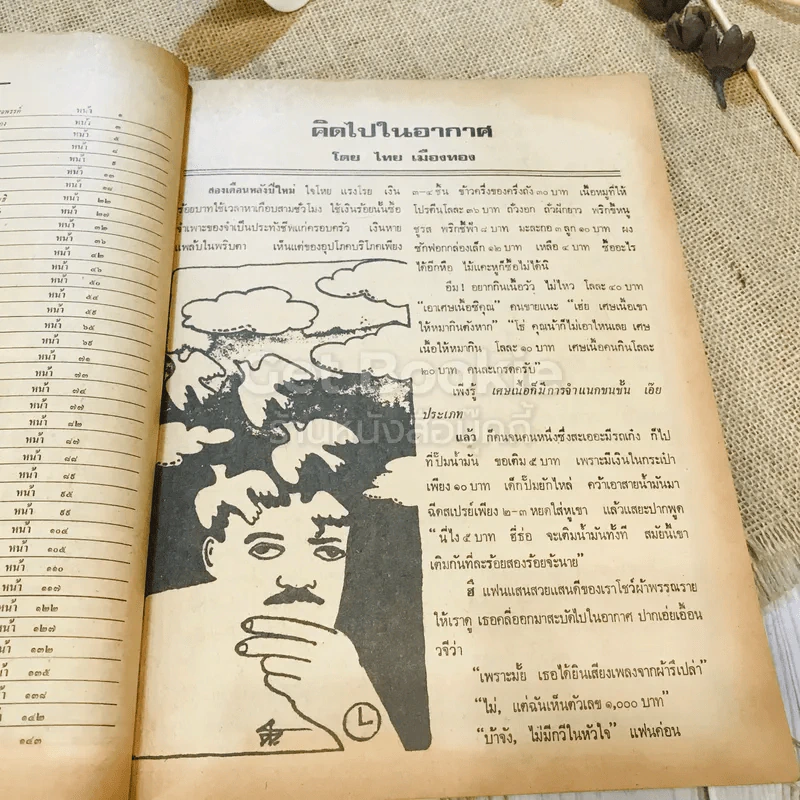 หน้า ๑
หน้า ๓
หน้า ๕
หน้า ๘
หน้า ๙
หน้า ๑๓
หน้า ๑๘
หน้า ๒๒
หน้า ๒๗
หน้า ๓๒
หน้า ๓๖
หน้า ๔๒
หน้า ๔๖
หน้า ๕๑
หน้า ๕๔
หน้า ๖๑
หน้า ๖๕
หน้า ๖๙
หน้า ๗๑
หน้า ๗๓
หน้า ๗๔
หน้า ๗๗
หน้า ๘๒
หน้า ๘๗
หน้า ๘๙
หน้า ๙๕
หน้า ๙๙
หน้า ๑๐๔
หน้า ๑๐๕
หน้า ๑๑๐
หน้า ๑๑๗
หน้า ๑๒๒
หน้า ๑๒๗
หน้า ๑๓๕
หน้า ๑๓๘
หน้า ๑๔๒
๑๔๓
คิดไปในอากาศ
โดย ไทย เมืองทอง
สองเดือนหลังปีใหม่ ใจโหย แรงโรย เงิน
ร้อยบาทใช้เวลาหาเกือบสามชั่วโมง ใช้เงินร้อยนั้นซื้อ
เฉพาะของจำเป็นประทังชีพแก่ครอบครัว เงินหาย
แพล็บในพริบตา เห็นแต่ของอุปโภคบริโภคเพียง
๓-๔ ชิ้น ข้าวครึ่งของครึ่งถัง ๓๐ บาท เนื้อหมูที่ให้
โปรตีนโลละ ๓๖ บาท ถั่วงอก ถั่วฝักยาว พริกขี้หนู
ชูรส พริกชี้ฟ้า ๘ บาท มะละกอ ๓ ลูก ๑๐ บาท ผง
ซักฟอกกล่องเล็ก ๑๒ บาท เหลือ ๔ บาท ซื้ออะไร
ได้อีกหือ ไม้แคะหูก็ซื้อไม่ได้นิ
อืม! อยากกินเนื้อวัว ไม่ไหว โลละ ๔๐ บาท
"เอาเศษเนื้อซิคุณ" คนขายแนะ "เฮ่ย เศษเนื้อเขา
ให้หมากินตังหาก" "โธ่ คุณน้าก็ไม่เอาไหนเลย เศษ
เนื้อให้หมากิน โลละ ๑๐ บาท เศษเนื้อคนกินโลละ
๒๐ บาท คนละเกรดครับ"
เพิ่งรู้ เศษเนื้อก็มีการจำแนกชนชั้น เอ๊ย
ประเภท
แล้ว ก็คนจนคนหนึ่งซึ่งสะเออะมีรถเก๋ง ก็ไป
ที่ปั๊มน้ำมัน ขอเติม ๕ บาท เพราะมีเงินในกระเป๋า
เพียง ๑๐ บาท เด็กปั๊มยักไหล่ คว้าเอาสายน้ำมันมา
ฉีดสเปรย์เพียง ๒-๓ หยดใส่หูเขา แล้วแสยะปากพูด
"นี่ไง ๕ บาท ฮี่ธ่อ จะเติมน้ำมันทั้งที สมัยนี้เขา
เติมกันทีละร้อยสองร้อยจ้ะนาย"
ฮึ แฟนแสนสวยแสนดีของเราโชว์ผ้าพรรณราย
ให้เราดู เธอคลี่ออกมาสะบัดไปในอากาศ ปากเอ่ยเอื้อน
วจีว่า
"เพราะมั้ย เธอได้ยินเสียงเพลงจากผ้ารึเปล่า"
"ไม่, แต่ฉันเห็นตัวเลข ๑,๐๐๐ บาท"
"บ้าจัง, ไม่มีกวีในหัวใจ" แฟนค่อน
Get Bookie
ร้านหนังสือบุ๊คกี้